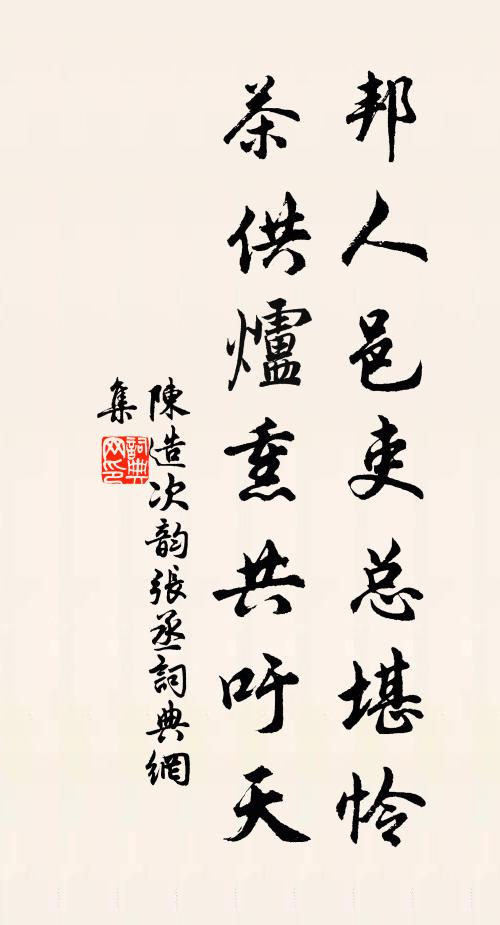 邦人邑吏总堪怜
茶供爐熏共吁天
陳造次韵張丞詞典網
集
詞典
网印